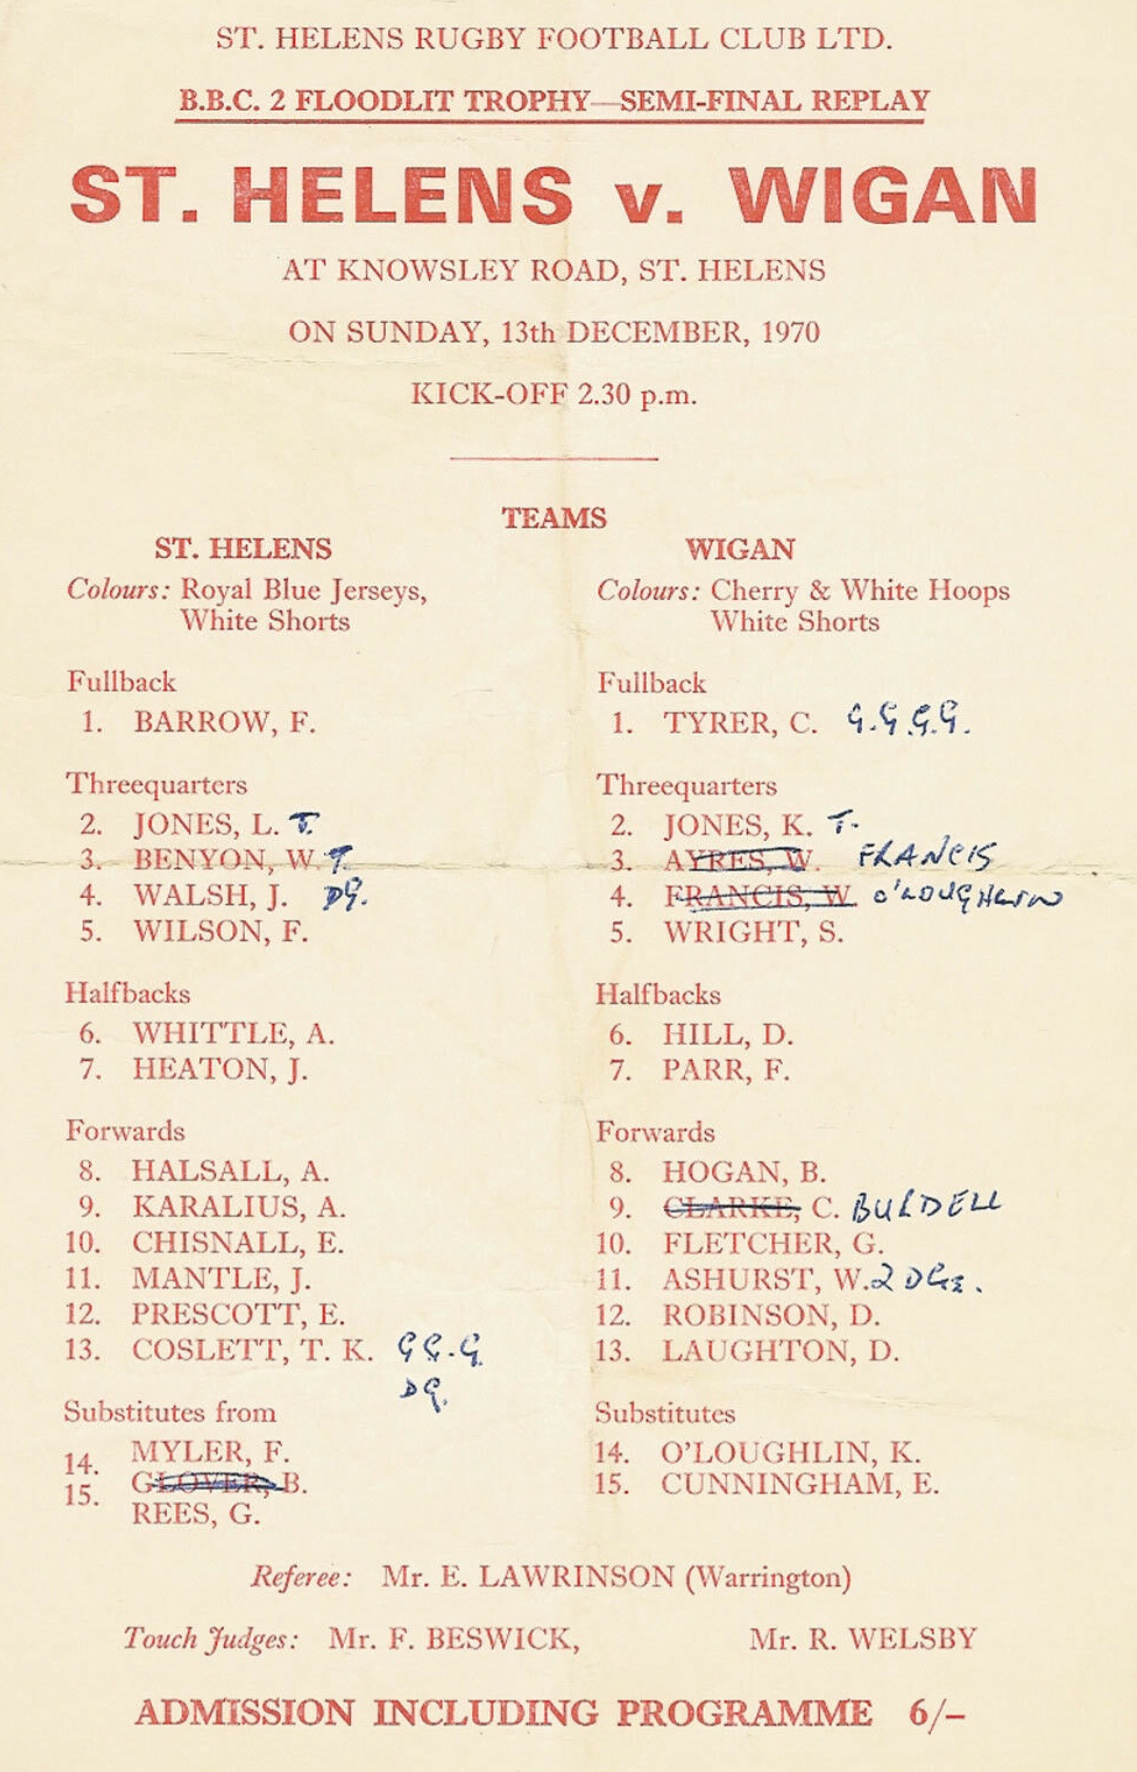 ST. HELENS RUGBY FOOTBALL CLUB LTD.
B.B.C. 2 FLOODLIT TROPHY—SEMI-FINAL REPLAY
ST. HELENS v. WIGAN
AT KNOWSLEY ROAD, ST. HELENS
ON SUNDAY, 13th DECEMBER, 1970
KICK-OFF 2.30 p.m.
TEAMS
ST. HELENS
Colours: Royal Blue Jerseys,
White Shorts
Fullback
1. BARROW, F.
Threequarters
2. JONES, L. T.
3. BENYON, W. T.
4. WALSH, J. DG.
5. WILSON, F.
Halfbacks
6. WHITTLE, A.
7. HEATON, J.
Forwards
8. HALSALL, A.
9. KARALIUS, A.
10. CHISNALL, E.
11. MANTLE, J.
12. PRESCOTT, E.
13. COSLETT, T. K. G G.G.
DG.
Substitutes from
14. MYLER, F.
15. GLOVER, B.
REES, G.
WIGAN
Colours: Cherry & White Hoops
White Shorts
Fullback
1. TYRER, C. G.G.G.G.
Threequarters
2. JONES, K. T.
3. AYRES, W. FRANCIS
4. FRANCIS, W. O'LOUGHLIN
5. WRIGHT, S.
Halfbacks
6. HILL, D.
7. PARR, F.
Forwards
8. HOGAN, B.
9. CLARKE, C. BURDELL
10. FLETCHER, G.
11. ASHURST, W. 2 DGs.
12. ROBINSON, D.
13. LAUGHTON, D.
Substitutes
14. O'LOUGHLIN, K.
15. CUNNINGHAM, E.
Referee: Mr. E. LAWRINSON (Warrington)
Touch Judges: Mr. F. BESWICK, Mr. R. WELSBY
ADMISSION INCLUDING PROGRAMME 6/–